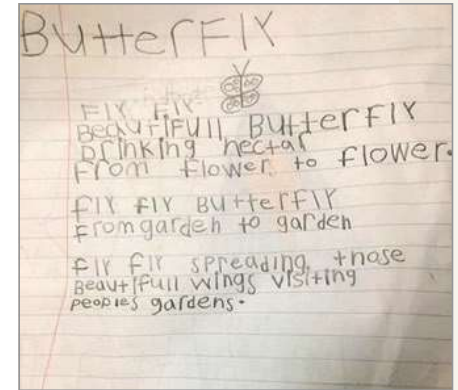 ButterFly
Fly Fly
BeautiFull Butterfly
Drinking nectar
From flower to flower.
Fly Fly Butterfly
From garden to garden
Fly Fly spreading those
BeautiFull wings visiting
peoples gardens.